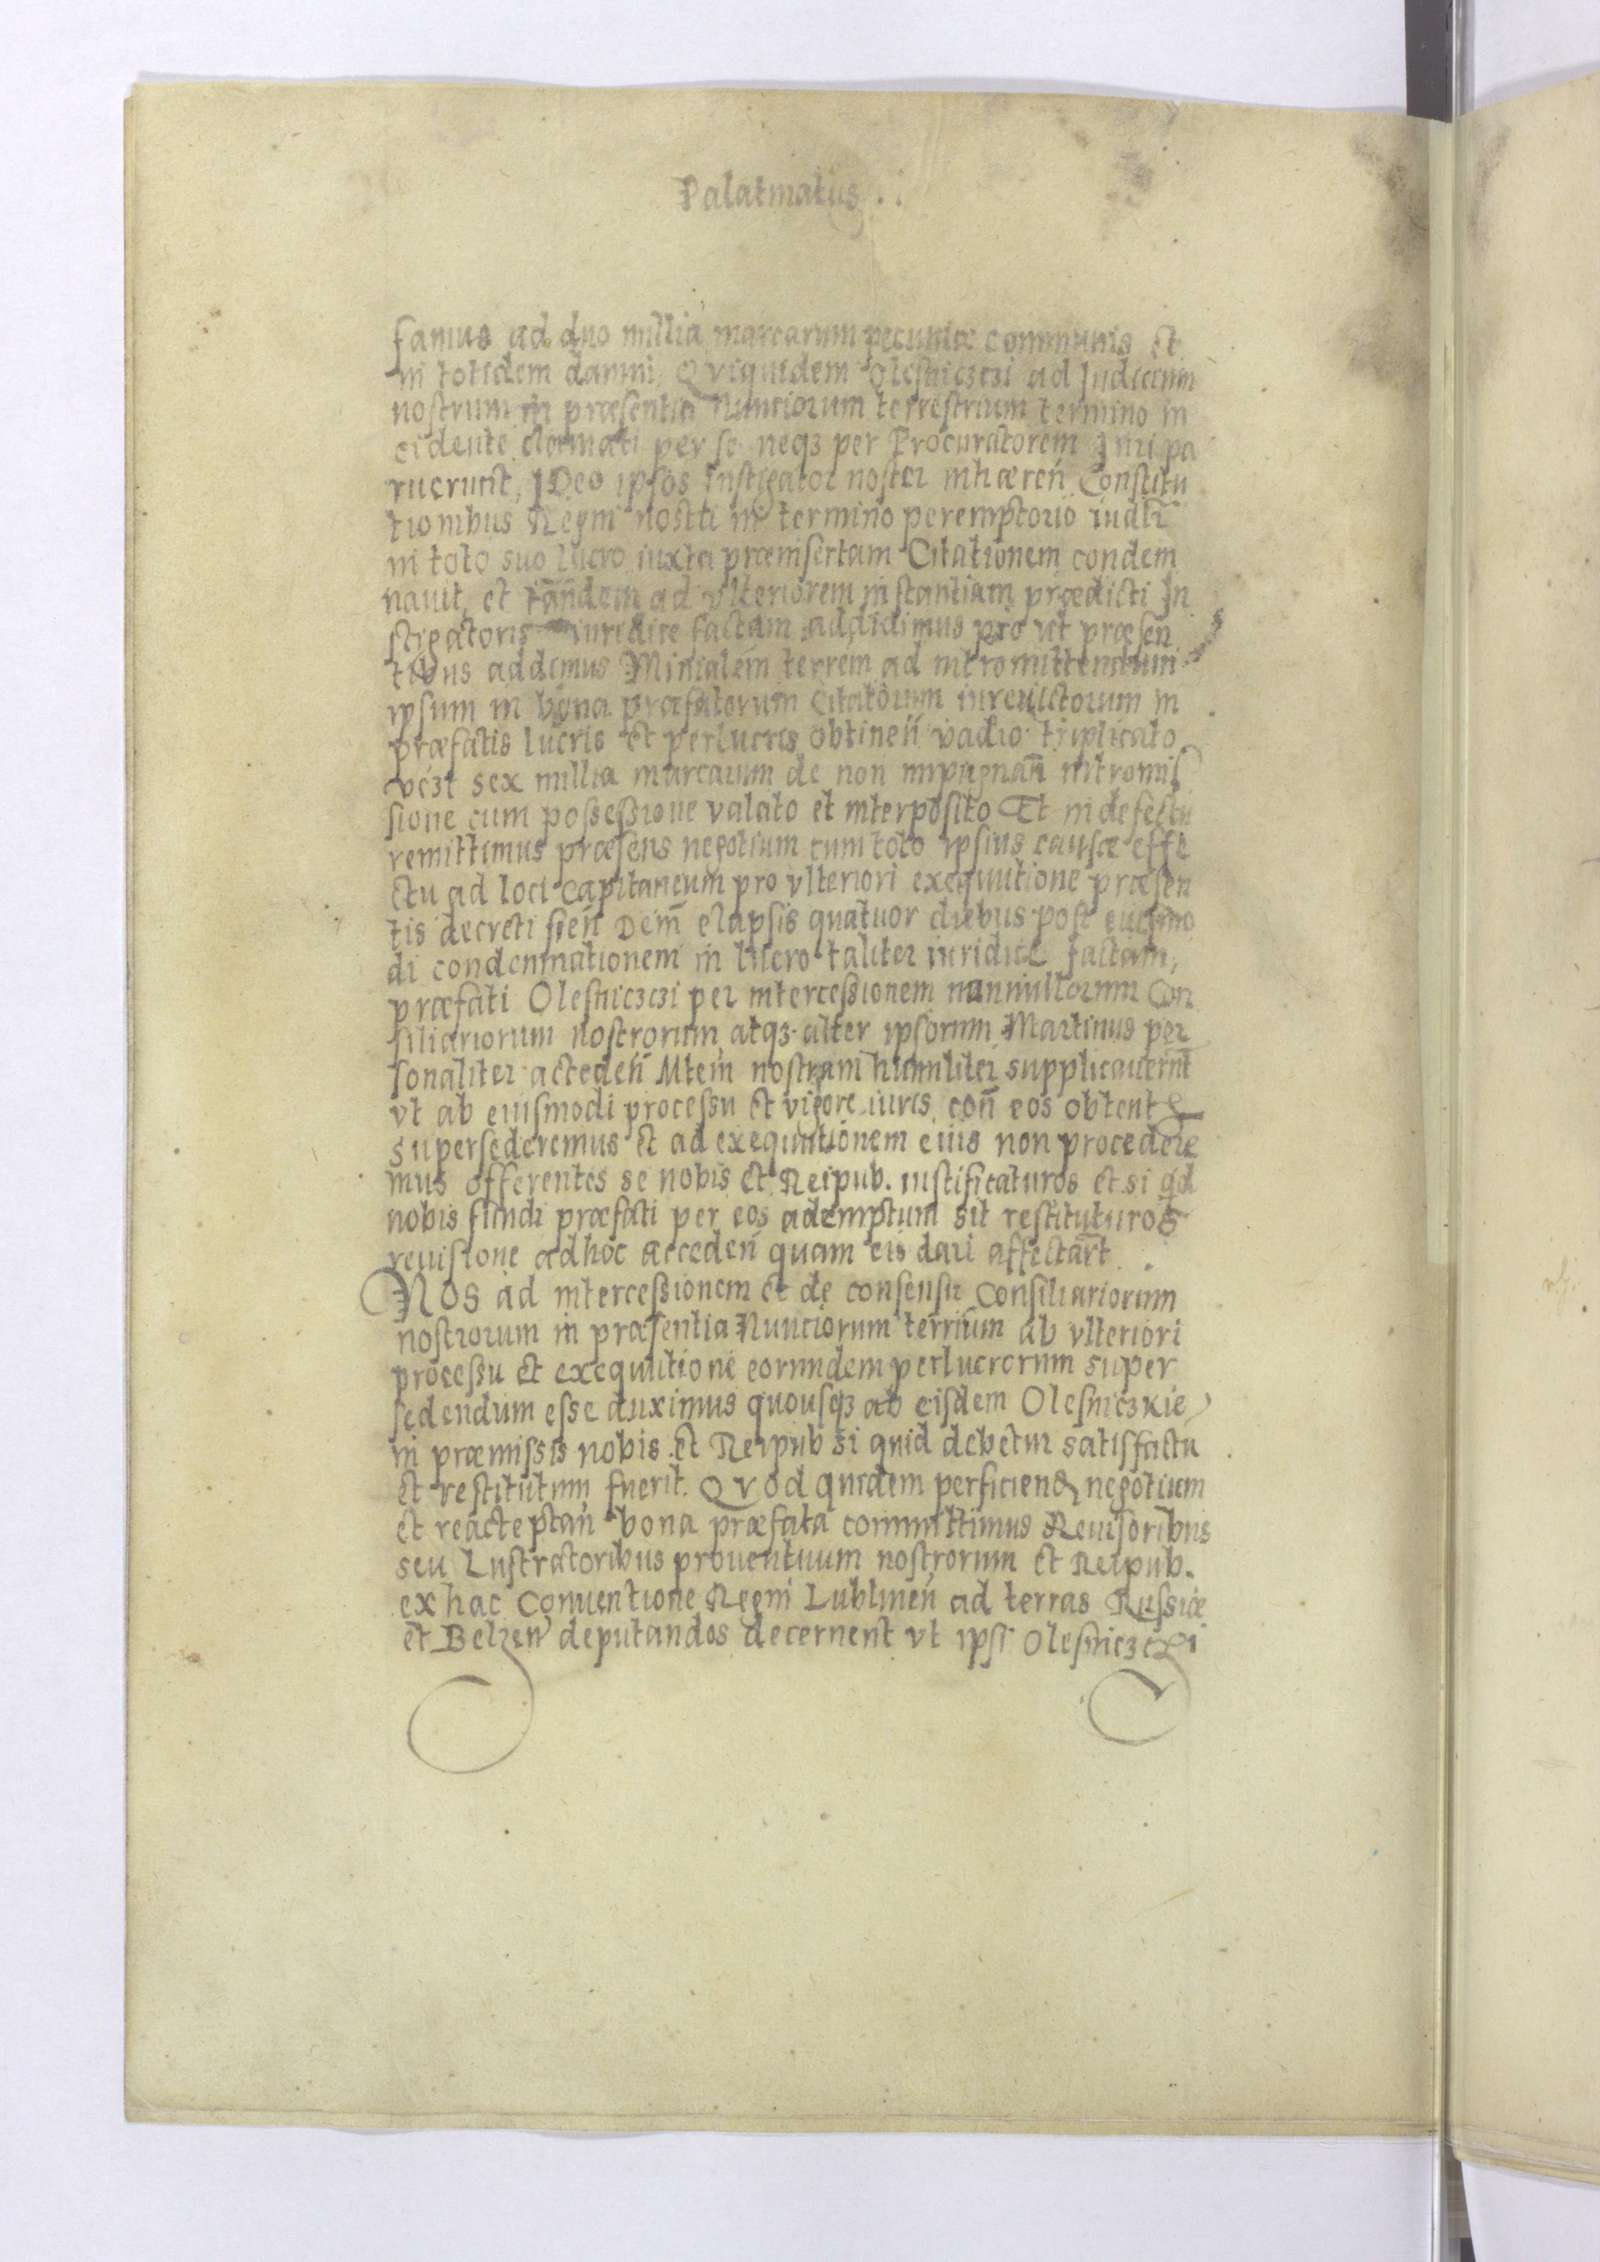 Palatinatus . .
samus ad duo millia marcarum pecuniæ communis et
in totidem damni, Quiquidem Olesniczczi ad Iudicium
nostrum in præsentia Nunciorum terrestrium termino in
cidente clamati per se neqз per Procuratorem Iuri pa
ruerunt, IDeo ipsos Instigator noster inhæren̄ Constitu
tionibus Regni nostri in termino peremptorio
in toto suo lucro iuxta præinsertam Citationem condem
nauit, et tandem ad vlteriorem instantiam prædicti In
stigatoris iuridice factam addidimus pro vt præsen
tibus addimus Minialem terrēm ad intromittendum
ipsum in bona præfatorum Citatorum iureuictorum in
præfatis lucris et perlucris obtinen̄ vadio triplicato
vczt sex millia marcarum de non impugnan̄ intromis
sione cum possessione valato et interposito Et in defectu
remittimus præsens negotium cum toto ipsius causæ effe
ctu ad loci Capitaneum pro vlteriori exequutione præsen
tis decreti fien̄ Dein̄ elapsis quatuor diebus post euismo
di condemnationem in lucro taliter iuridice factam,
præfati Olesniczczi per intercessionem nonnullorum Con
siliariorum nostrorum atqз alter ipsorum Martinus per
sonaliter acceden̄ Mtem̄ nostram humiliter supplicauerūt
vt ab eiusmodi processu et vigore iuris con̄ eos obtent
supersederemus et ad exequutionem eius non procedere
mus offerentes se nobis et Reipub. iustificaturos et si qd
nobis fundi præfati per eos ademptum sit restituturos
reuisione adhoc acceden̄ quam eis dari affectar̄t .
NOS ad intercessionem et de consensu Consiliariorum
nostrorum in præsentia Nunciorum terrīum ab vlteriori
processu et exequutione eorundem perlucrorum super
sedendum esse duximus quousqз ab eisdem Olesniczkie
in præmissis nobis et Reipub si quid debetur satisfactu
et restitutum fuerit. QVod quidem perficiend negotium
et reacceptan̄ bona præfata committimus Reuisoribus
seu Lustratoribus prouentuum nostrorum et Reipub.
ex hac Conuentione Regni Lublinen̄ ad terras Russiæ
et Belzen̄ deputandos decernent vt ipsi Olesniczczi